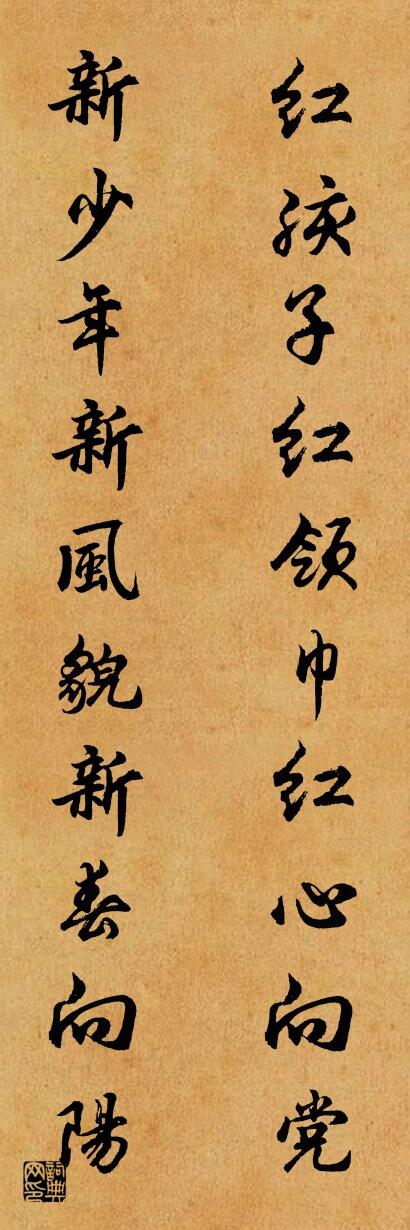 红孩子红领巾红心向党
新少年新風貌新春向陽